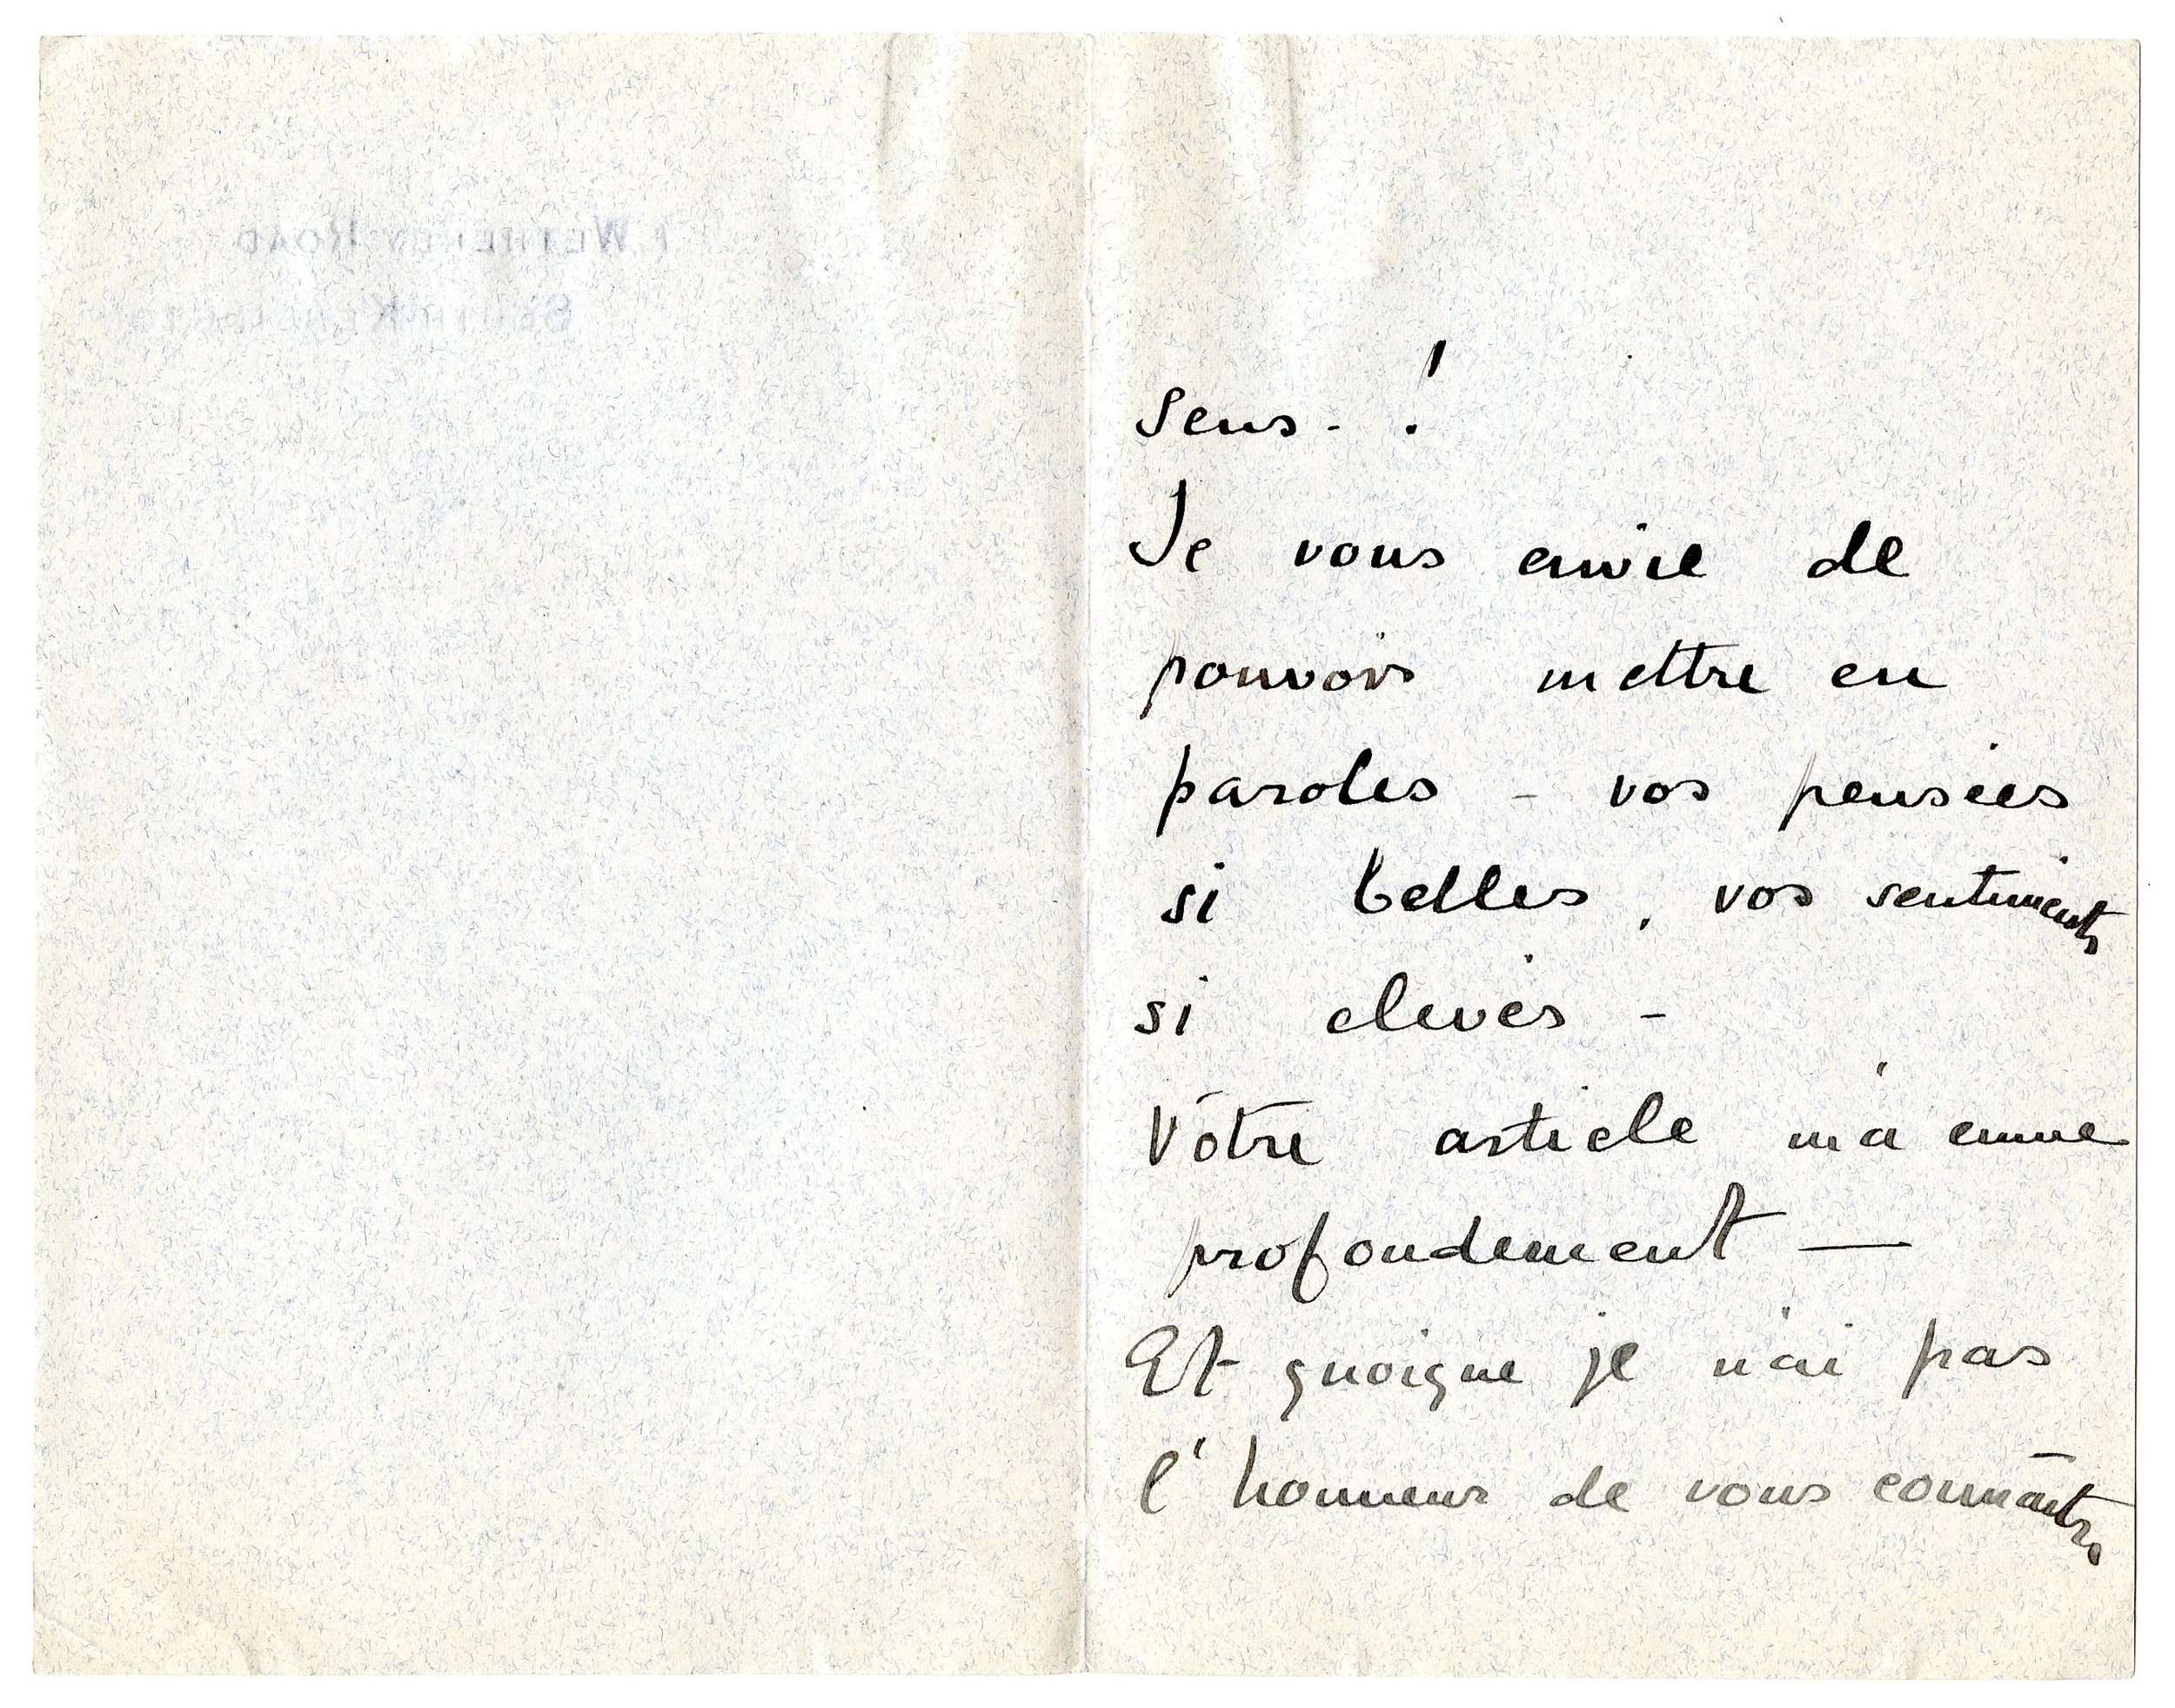 WETHERBY ROAD
SOUTH KENSINGTON
sens - !
Je vous envie de
pouvoir mettre en
paroles - vos pensées
si belles, vos sentiments
si elevés -
Vôtre article m'a emue
profondement —
Et quoique je n'ai pas
l'honneur de vous connaître